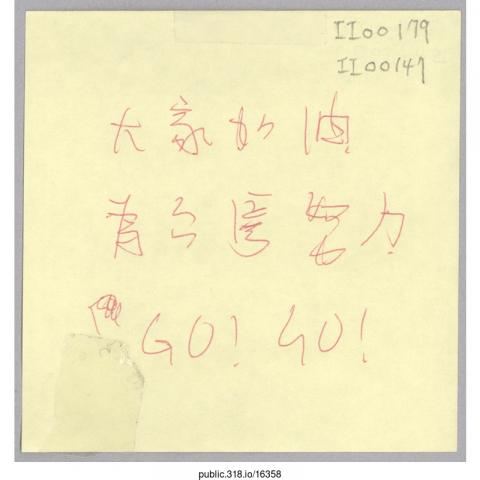 II00179
II00147
大家加油
努力
GO! GO!
public.318.io/16358